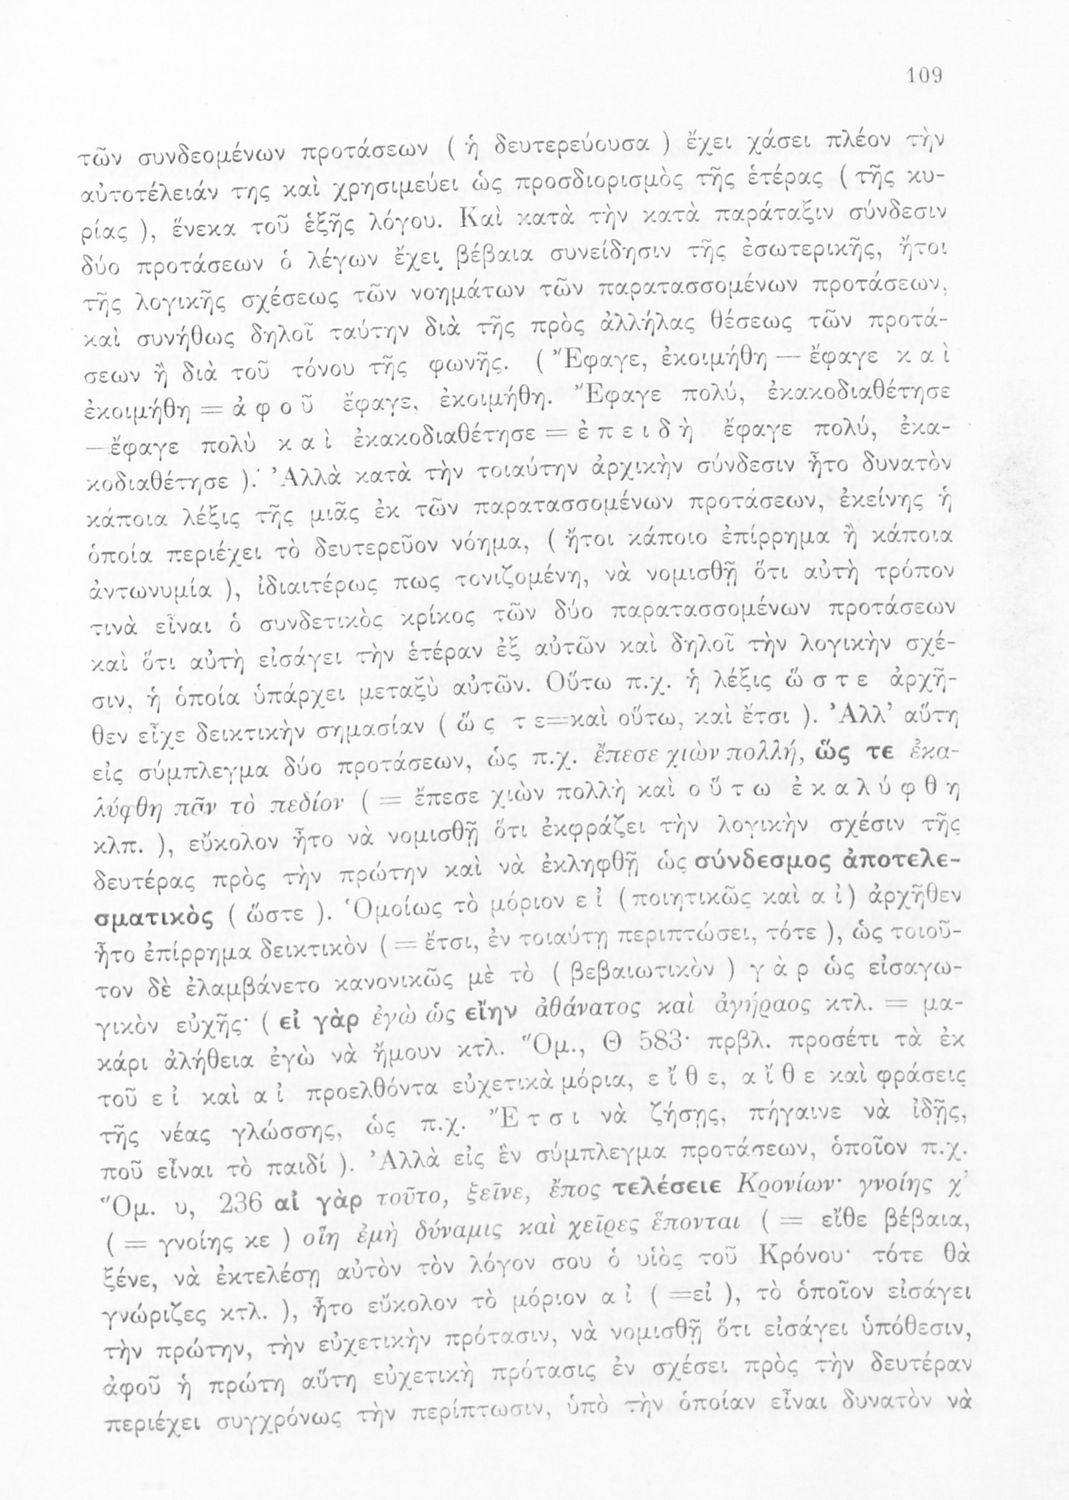 109
τῶν συνδεομένων προτάσεων ( ἡ δευτερεύουσα ) ἔχει χάσει πλέον τὴν
αὐτοτέλειάν της καὶ χρησιμεύει ὡς προσδιορισμὸς τῆς ἑτέρας ( τῆς κυ-
ρίας ), ἕνεκα τοῦ ἑξῆς λόγου. Καὶ κατὰ τὴν κατὰ παράταξιν σύνδεσιν
δύο προτάσεων ὁ λέγων ἔχει βέβαια συνείδησιν τῆς ἐσωτερικῆς, ἤτοι
τῆς λογικῆς σχέσεως τῶν νοημάτων τῶν παρατασσομένων προτάσεων,
καὶ συνήθως δηλοῖ ταύτην διὰ τῆς πρὸς ἀλλήλας θέσεως τῶν προτά-
σεων ἢ διὰ τοῦ τόνου τῆς φωνῆς. ( Ἔφαγε, ἐκοιμήθη — ἔφαγε κ α ὶ
ἐκοιμήθη = ἀ φ ο ῦ ἔφαγε, ἐκοιμήθη. Ἔφαγε πολύ, ἐκακοδιαθέτησε
— ἔφαγε πολὺ κ α ὶ ἐκακοδιαθέτησε = ἐ π ε ι δ ὴ ἔφαγε πολύ, ἐκα-
κοδιαθέτησε ). Ἀλλὰ κατὰ τὴν τοιαύτην ἀρχικὴν σύνδεσιν ἦτο δυνατὸν
κάποια λέξις τῆς μιᾶς ἐκ τῶν παρατασσομένων προτάσεων, ἐκείνης ἡ
ὁποία περιέχει τὸ δευτερεῦον νόημα, ( ἤτοι κάποιο ἐπίρρημα ἢ κάποια
ἀντωνυμία ), ἰδιαιτέρως πως τονιζομένη, νὰ νομισθῇ ὅτι αὐτὴ τρόπον
τινὰ εἶναι ὁ συνδετικὸς κρίκος τῶν δύο παρατασσομένων προτάσεων
καὶ ὅτι αὐτὴ εἰσάγει τὴν ἑτέραν ἐξ αὐτῶν καὶ δηλοῖ τὴν λογικὴν σχέ-
σιν, ἡ ὁποία ὑπάρχει μεταξὺ αὐτῶν. Οὕτω π.χ. ἡ λέξις ὥ σ τ ε ἀρχῆ-
θεν εἶχε δεικτικὴν σημασίαν ( ὥ ς τ ε=καὶ οὕτω, καὶ ἔτσι ). Ἀλλ’ αὕτη
εἰς σύμπλεγμα δύο προτάσεων, ὡς π.χ. ἔπεσε χιὼν πολλή, ὥς τε ἐκα-
λύφθη πᾶν τὸ πεδίον ( = ἔπεσε χιὼν πολλὴ καὶ ο ὕ τ ω ἐ κ α λ ύ φ θ η
κλπ. ), εὔκολον ἦτο νὰ νομισθῇ ὅτι ἐκφράζει τὴν λογικὴν σχέσιν τῆς
δευτέρας πρὸς τὴν πρώτην καὶ νὰ ἐκληφθῇ ὡς σύνδεσμος ἀποτελε-
σματικὸς ( ὥστε ). Ὁμοίως τὸ μόριον ε ἰ (ποιητικῶς καὶ α ἰ) ἀρχῆθεν
ἦτο ἐπίρρημα δεικτικὸν ( = ἔτσι, ἐν τοιαύτῃ περιπτώσει, τότε ), ὡς τοιοῦ-
τον δὲ ἐλαμβάνετο κανονικῶς μὲ τὸ ( βεβαιωτικὸν ) γ ὰ ρ ὡς εἰσαγω-
γικὸν εὐχῆς· ( εἰ γὰρ ἐγὼ ὡς εἴην ἀθάνατος καὶ ἀγήραος κτλ. = μα-
κάρι ἀλήθεια ἐγὼ νὰ ἤμουν κτλ. Ὅμ., Θ 583· πρβλ. προσέτι τὰ ἐκ
τοῦ ε ἰ καὶ α ἰ προελθόντα εὐχετικὰ μόρια, ε ἴ θ ε, α ἴ θ ε καὶ φράσεις
τῆς νέας γλώσσης, ὡς π.χ. Ἔ τ σ ι νὰ ζήσῃς, πήγαινε νὰ ἰδῇς,
ποῦ εἶναι τὸ παιδί ). Ἀλλὰ εἰς ἓν σύμπλεγμα προτάσεων, ὁποῖον π.χ.
Ὅμ. υ, 236 αἰ γὰρ τοῦτο, ξεῖνε, ἔπος τελέσειε Κρονίων· γνοίης χ’
( = γνοίης κε ) οἵη ἐμὴ δύναμις καὶ χεῖρες ἕπονται ( = εἴθε βέβαια,
ξένε, νὰ ἐκτελέσῃ αὐτὸν τὸν λόγον σου ὁ υἱὸς τοῦ Κρόνου· τότε θὰ
γνώριζες κτλ. ), ἦτο εὔκολον τὸ μόριον α ἰ ( =εἰ ), τὸ ὁποῖον εἰσάγει
τὴν πρώτην, τὴν εὐχετικὴν πρότασιν, νὰ νομισθῇ ὅτι εἰσάγει ὑπόθεσιν,
ἀφοῦ ἡ πρώτη αὕτη εὐχετικὴ πρότασις ἐν σχέσει πρὸς τὴν δευτέραν
περιέχει συγχρόνως τὴν περίπτωσιν, ὑπὸ τὴν ὁποίαν εἶναι δυνατὸν νὰ